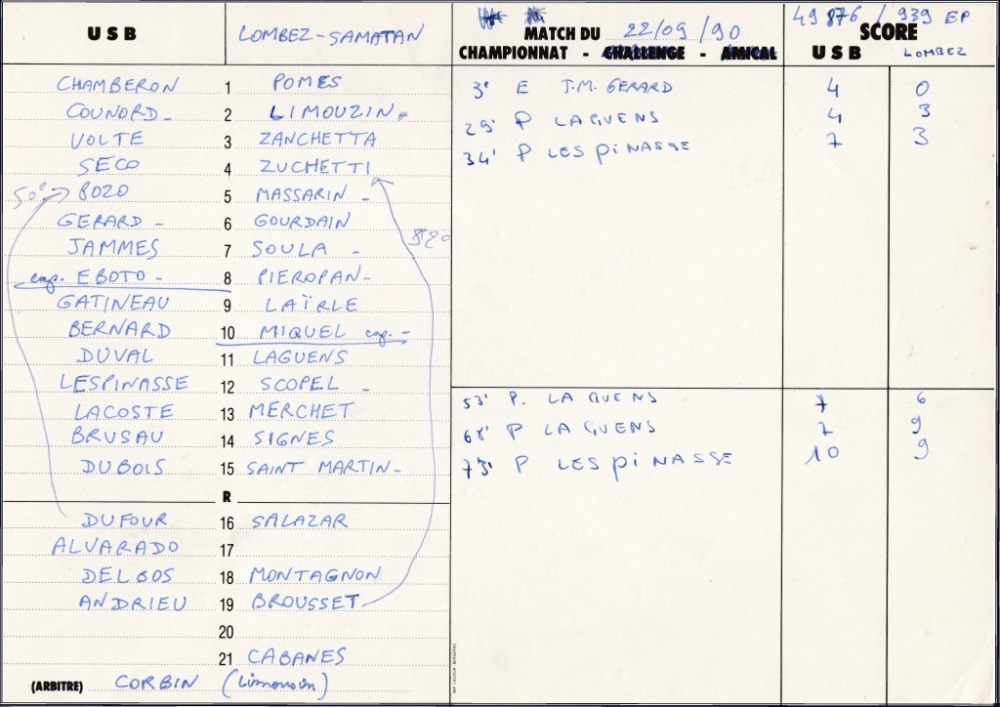 USB LOMBEZ-SAMATAN
MATCH DU 22/09/90
CHAMPIONNAT - CHALLENGE - AMICAL
49 876 / 939 EP
SCORE
USB LOMBEZ
CHAMBERON 1 POMES
COUNORD - 2 LIMOUZIN -
VOLTE 3 ZANCHETTA
SECO 4 ZUCHETTI
50' BOZO 5 MASSARIN -
GERARD - 6 GOURDAIN
JAMMES 7 SOULA -
cap. EBOTO - 8 PIEROPAN -
GATINEAU 9 LAÏRLE
BERNARD 10 MIQUEL cap. -
DUVAL 11 LAGUENS
LESPINASSE 12 SCOPEL -
LACOSTE 13 MERCHET
BRUSAU 14 SIGNES
DUBOIS 15 SAINT MARTIN -
R
DUFOUR 16 SALAZAR
ALVARADO 17
DELBOS 18 MONTAGNON
ANDRIEU 19 BROUSSET
20
21 CABANES
(ARBITRE) CORBIN (Limousin)
3' E J.M. GERARD 4 0
29' P LAGUENS 4 3
34' P LESPINASSE 7 3
53' P. LAGUENS 7 6
68' P LAGUENS 7 9
73' P LESPINASSE 10 9